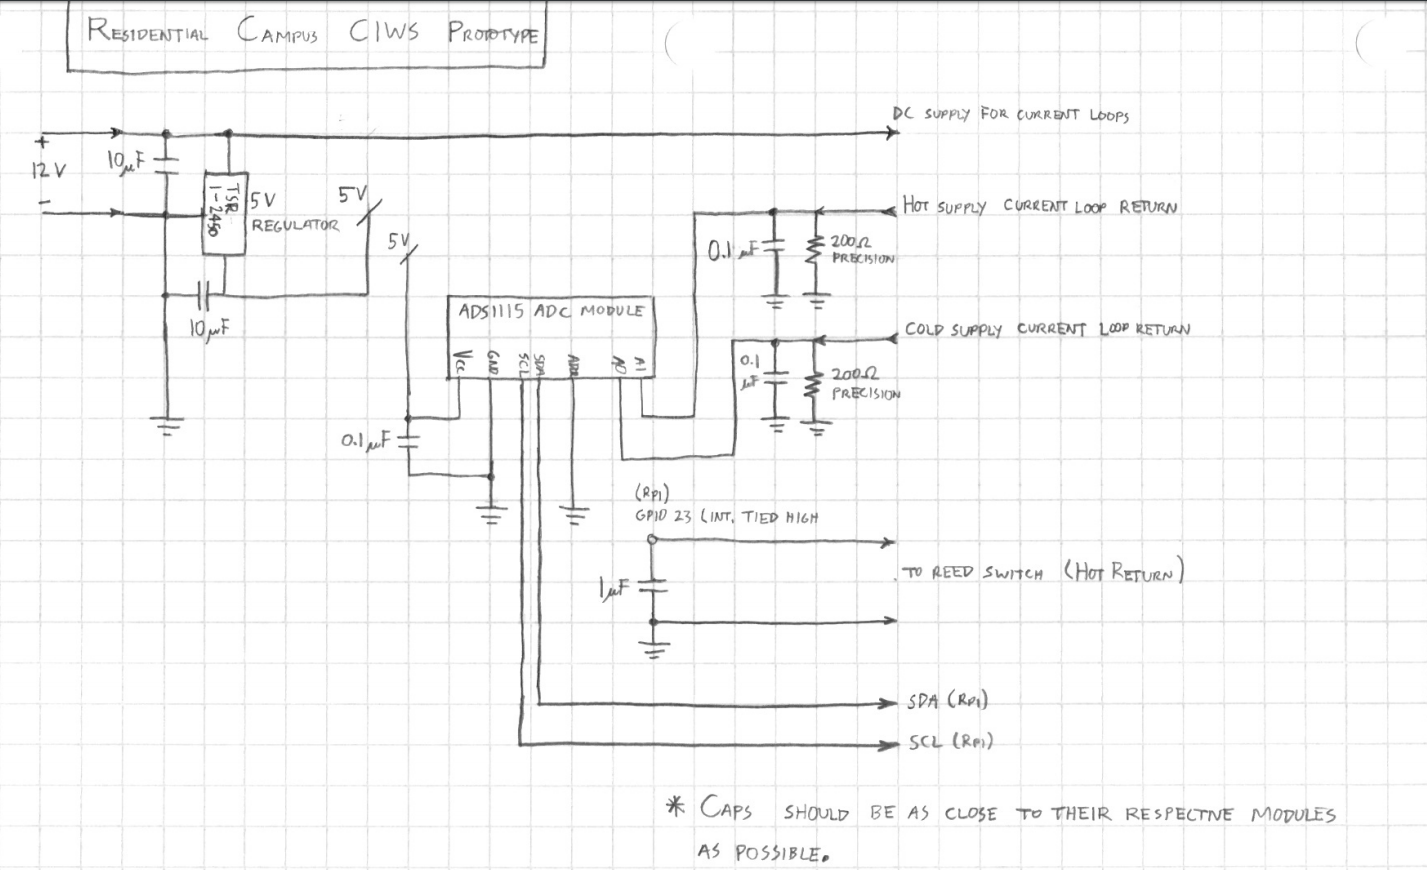 RESIDENTIAL CAMPUS CIWS PROTOTYPE
DC SUPPLY FOR CURRENT LOOPS
+
12V
-
10µF
TSR
1-2450
5V
REGULATOR
5V
10µF
5V
HOT SUPPLY CURRENT LOOP RETURN
0.1 µF
200Ω
PRECISION
ADS1115 ADC MODULE
VCC
GND
SCL
SDA
ADR
A0
A1
COLD SUPPLY CURRENT LOOP RETURN
0.1
µF
200Ω
PRECISION
0.1µF
(RPI)
GPIO 23 (INT. TIED HIGH
1µF
TO REED SWITCH (HOT RETURN)
SDA (RPI)
SCL (RPI)
* CAPS SHOULD BE AS CLOSE TO THEIR RESPECTIVE MODULES
AS POSSIBLE.